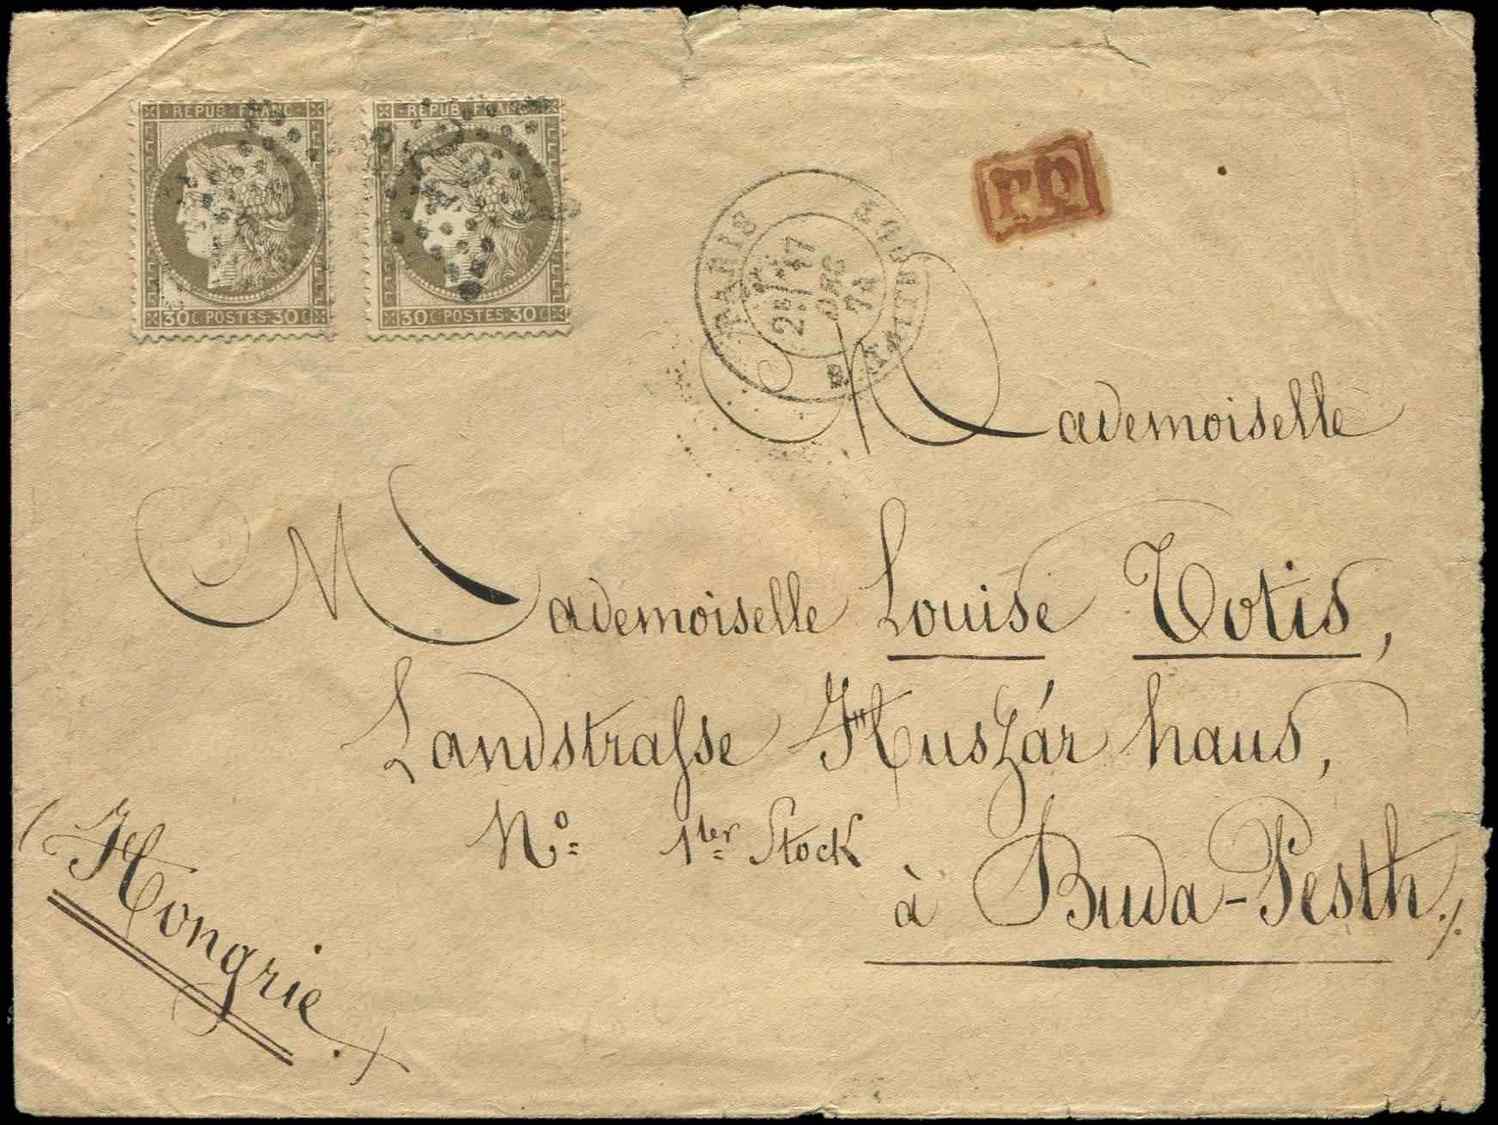 REPUB·FRANC·
30C·POSTES·30C
REPUB·FRANC·
30C·POSTES·30C
PARIS
2E
17
DEC
74
PD
Mademoiselle
Mademoiselle Louise Totis,
Landstrasse Huszár haus,
No. 1ter Stock
à Buda-Pesth
(Hongrie.)